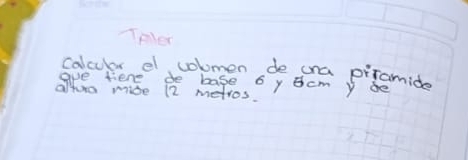 Taller
Calcular el volumen de una piramide
que tiene de base 6 y 8cm y de
altura mide 12 metros.